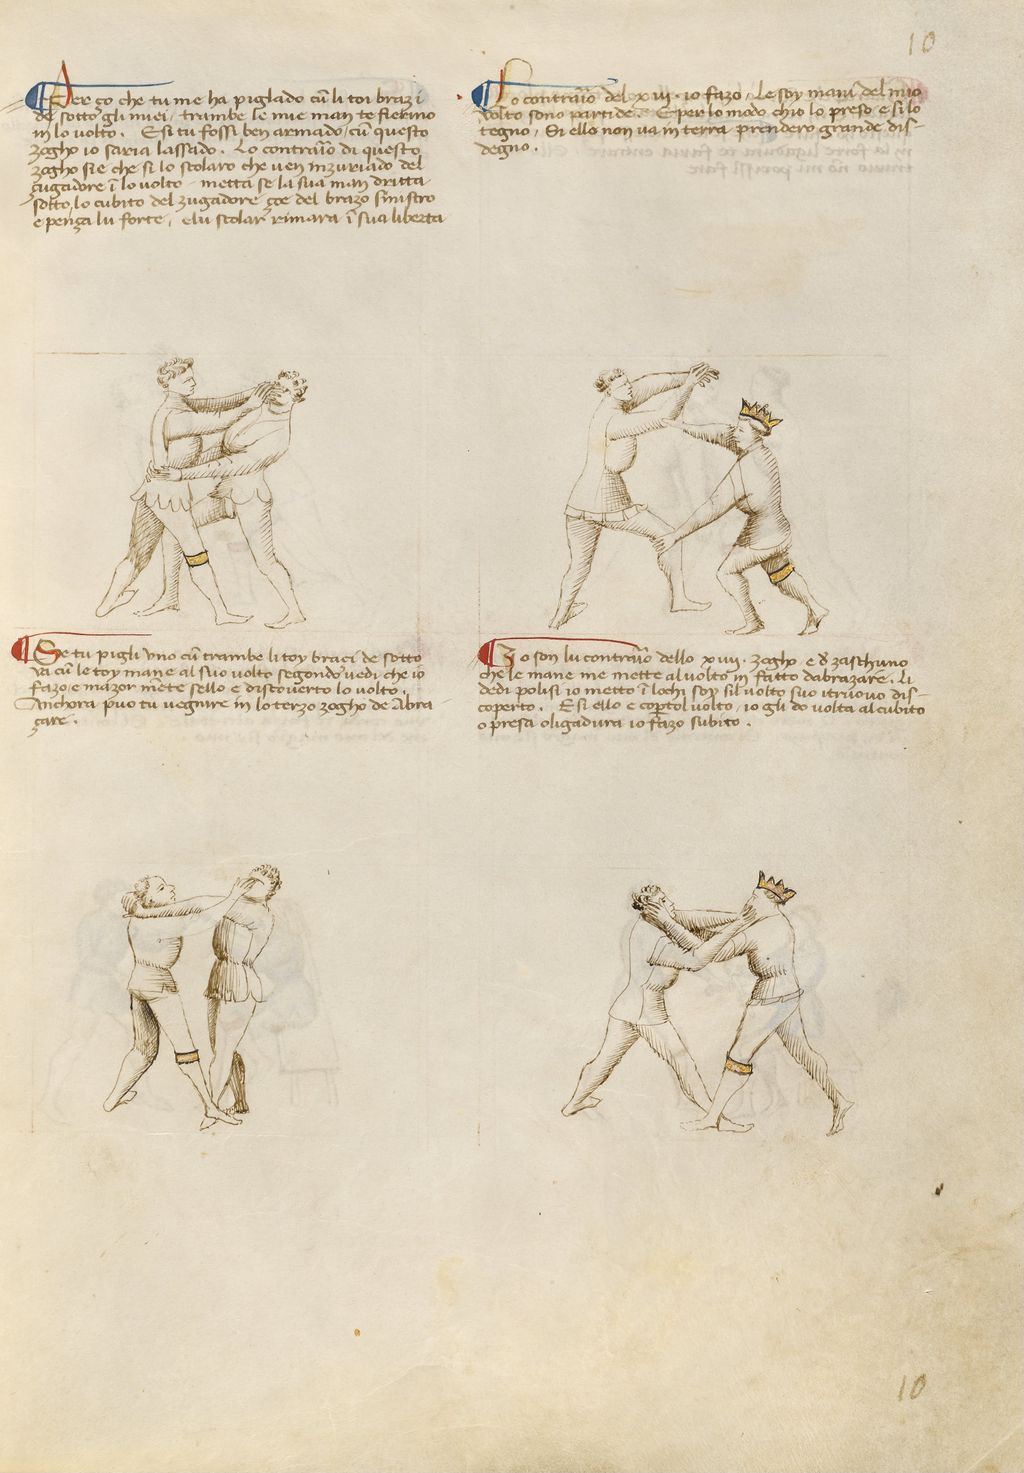 10
Per ço che tu me ha piglado cū li toi brazi
de sotto gli miei, trambe le mie man te fierino
in lo volto. E si tu fossi ben armado, cū questo
zogho io saria lassado. Lo contraīo di questo
zogho sie che si lo scolaro che ven inzuriado del
çugadore ī lo volto metta se la sua man dritta
sotto lo cubito del zugadore çoe del brazo sinistro
e penga lu forte, elu scolar rimara ī sua liberta
Lo contraīo del xiii. io fazo, Le soy mani del mio
volto sono partide. E per lo modo chio lo preso e si lo
tegno, Si ello non va in terra prendero grande dis-
degno.
Se tu pigli uno cū trambe li toy braci de sotto
va cū le toy mane al suo volto segondo vedi che io
fazo e mazor mēte sello e discoverto lo volto.
Anchora puo tu vegnire in lo terzo zogho de Abra
çare.
Io son lu contraīo dello xiiii. zogho, e d zaschuno
che le mane me mette al volto in fatto dabrazare. Li
dedi polisi io metto ī lochi soy sil volto suo itruovo dis-
coperto. E si ello e coptol volto, io gli do volta al cubito
o presa o ligadura io fazo subito.
10